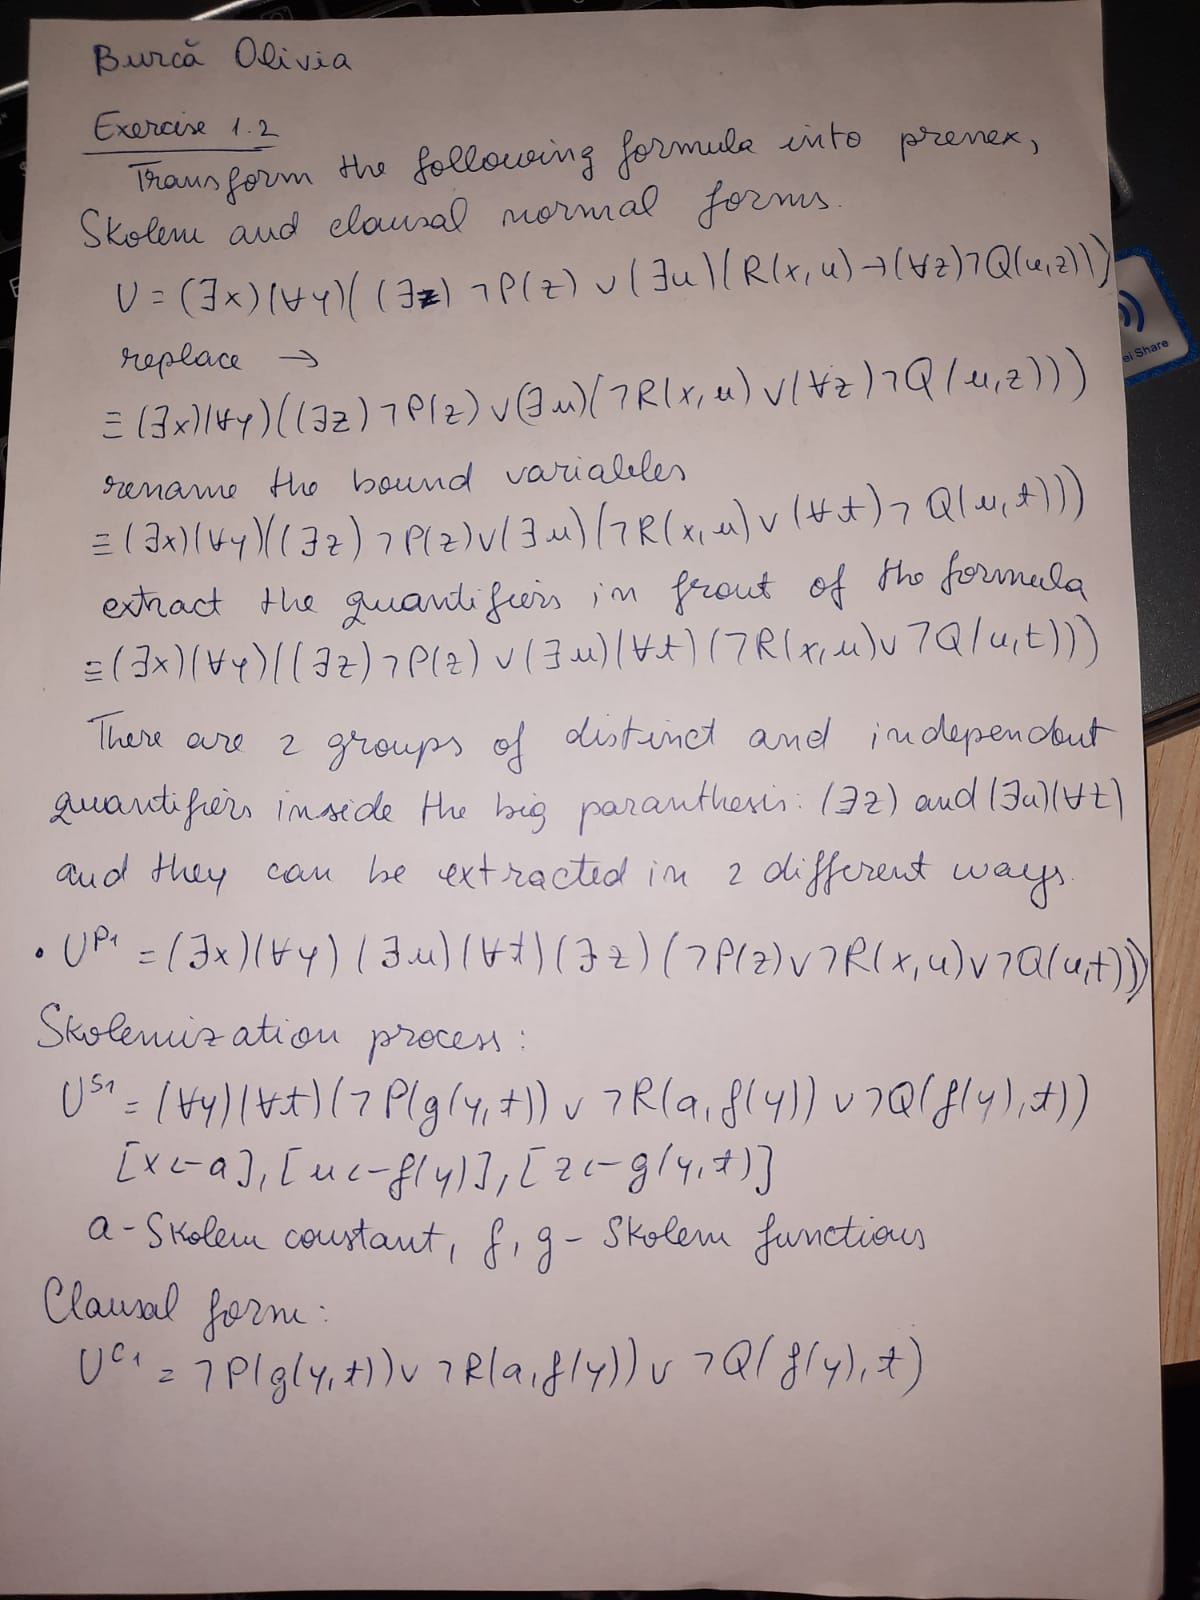 Burcă Olivia
Exercise 1.2
Transform the following formula into prenex,
Skolem and clausal normal forms.
U = (∃x)(∀y)((∃z)¬P(z) ∨ (∃u)(R(x,u)→(∀z)¬Q(u,z)))
ei Share
replace →
≡ (∃x)(∀y)((∃z)¬P(z) ∨ (∃u)(¬R(x,u) ∨ (∀z)¬Q(u,z)))
rename the bound variables
≡ (∃x)(∀y)((∃z)¬P(z) ∨ (∃u)(¬R(x,u) ∨ (∀t)¬Q(u,t)))
extract the quantifiers in front of the formula
≡ (∃x)(∀y)((∃z)¬P(z) ∨ (∃u)(∀t)(¬R(x,u) ∨ ¬Q(u,t)))
There are 2 groups of distinct and independent
quantifiers inside the big paranthesis: (∃z) and (∃u)(∀t)
and they can be extracted in 2 different ways.
• U^P1 = (∃x)(∀y)(∃u)(∀t)(∃z)(¬P(z) ∨ ¬R(x,u) ∨ ¬Q(u,t)))
Skolemization process:
U^S1 = (∀y)(∀t)(¬P(g(y,t)) ∨ ¬R(a,f(y)) ∨ ¬Q(f(y),t))
[x←a], [u←f(y)], [z←g(y,t)]
a - Skolem constant, f, g - Skolem functions
Clausal form:
U^C1 = ¬P(g(y,t)) ∨ ¬R(a,f(y)) ∨ ¬Q(f(y),t)